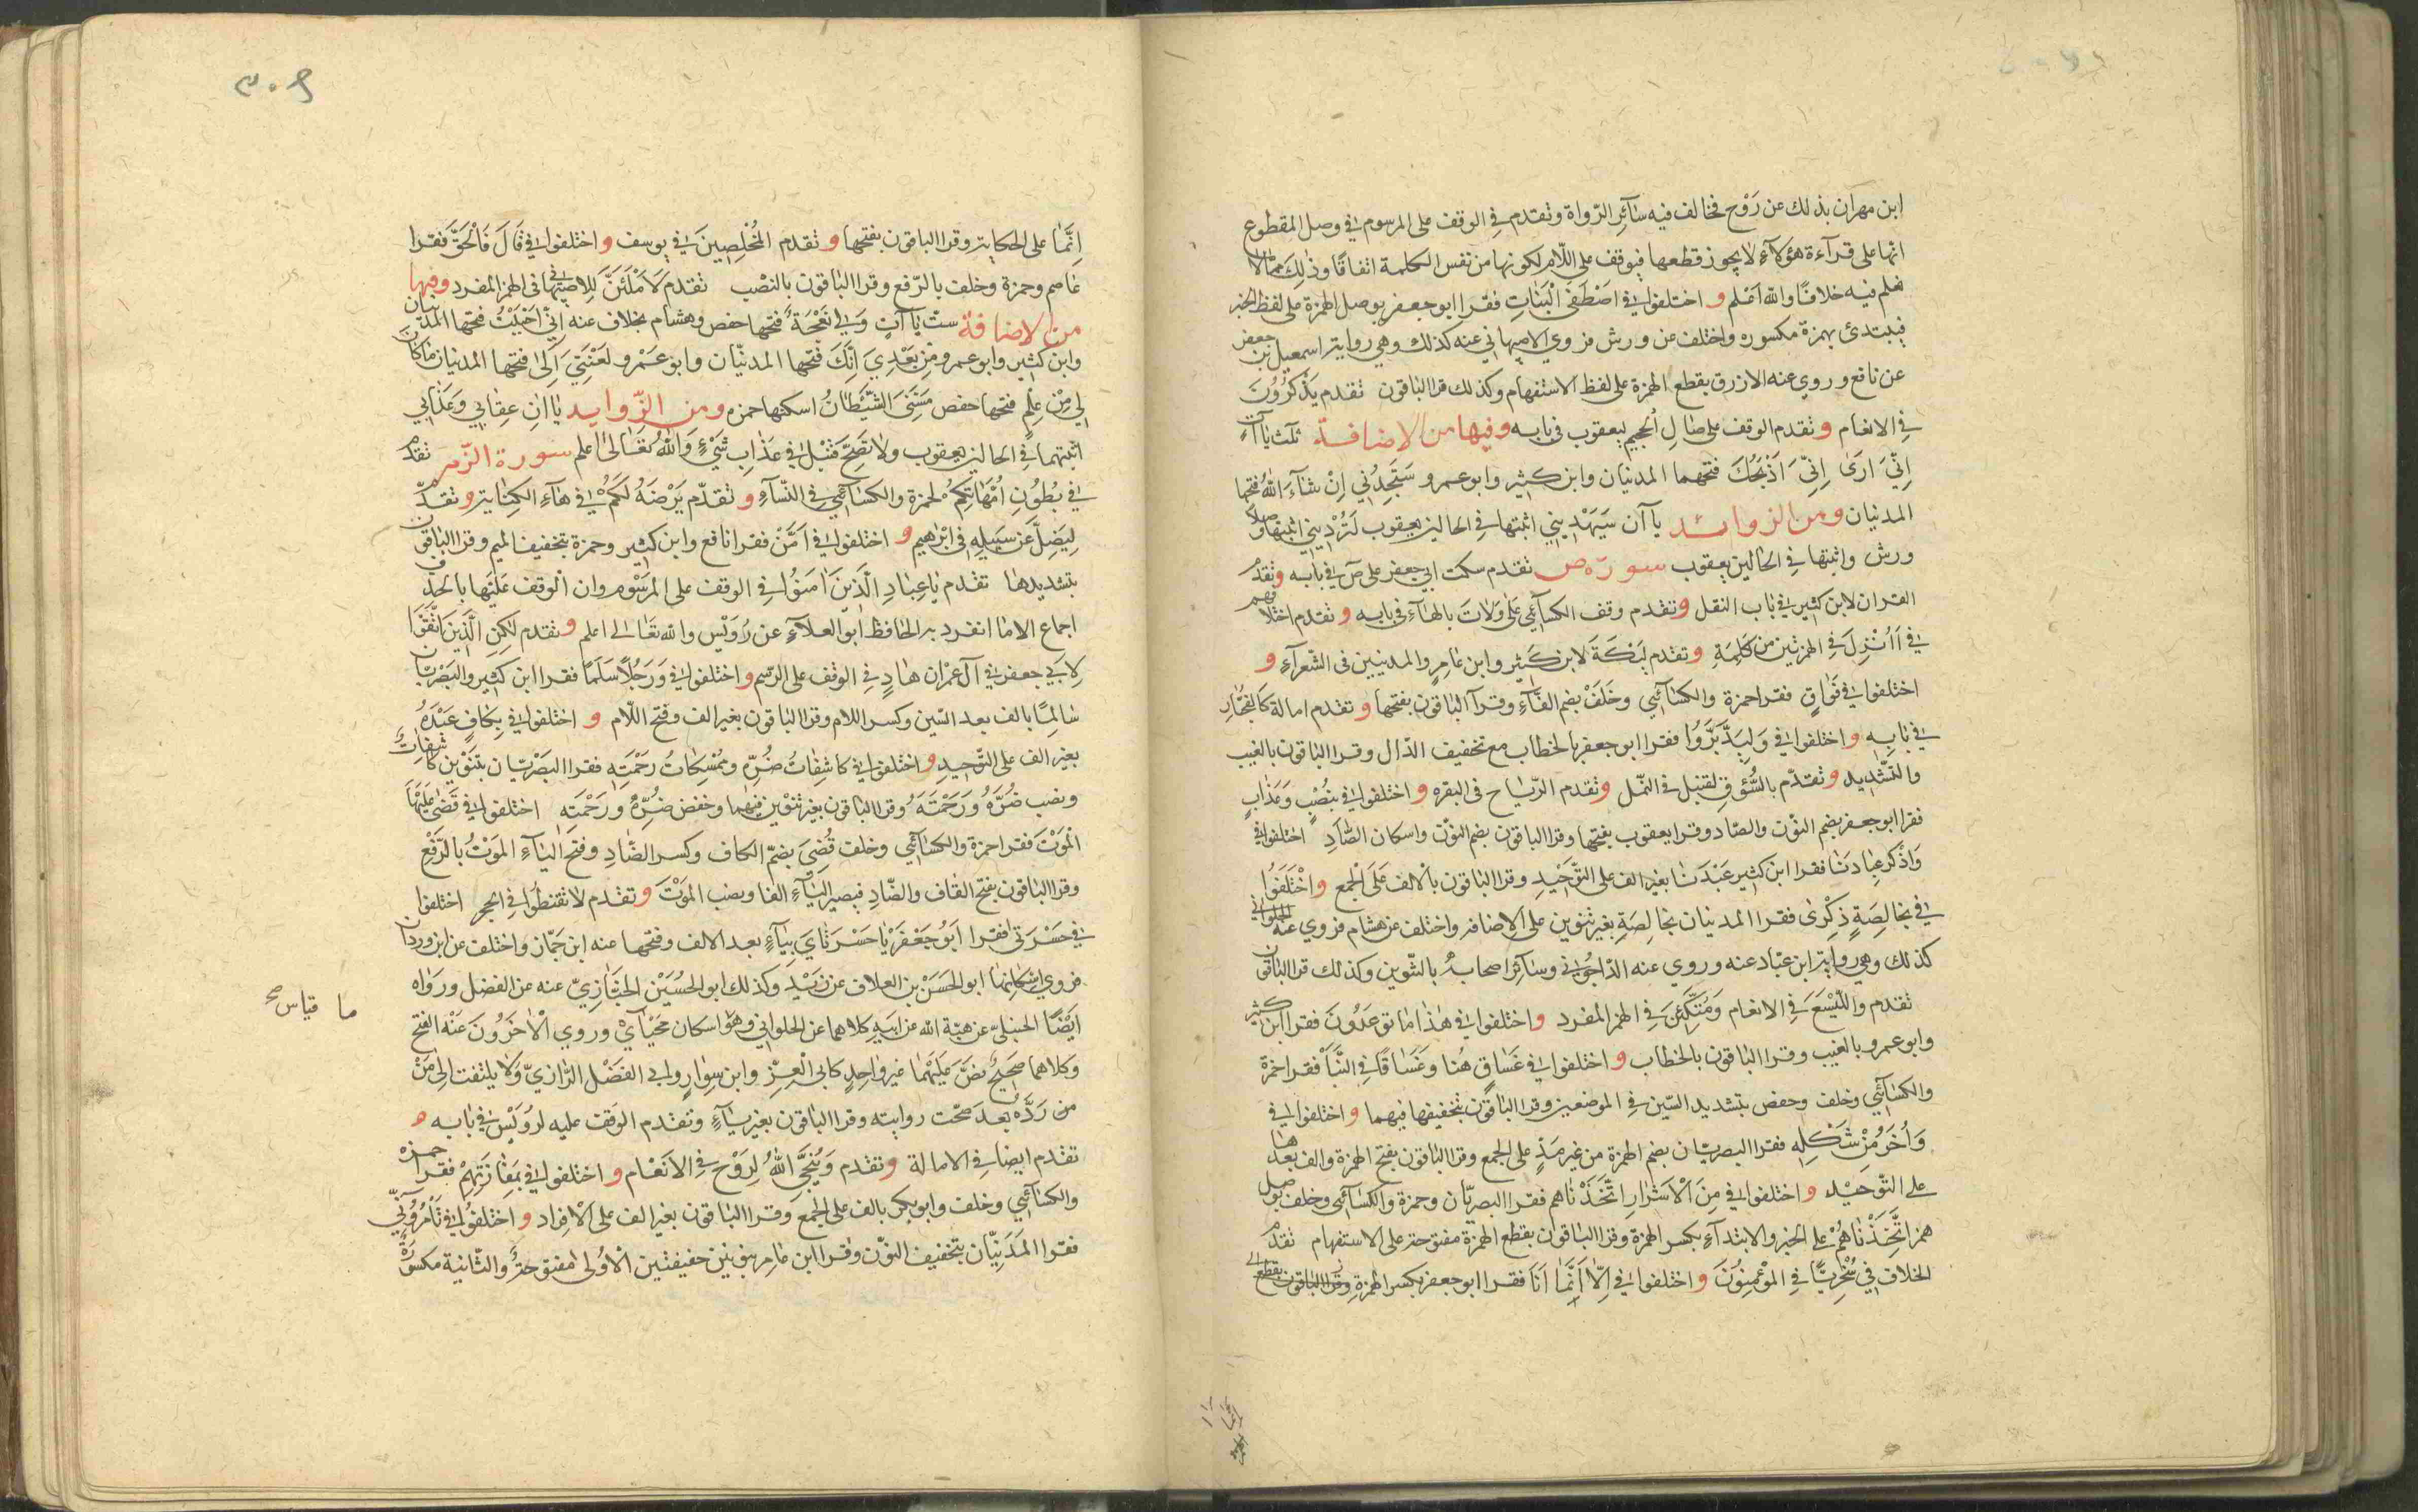 ابن مهران بذلك عن رَوْح فخالف فيه سآئر الرّواة وتقدم في الوقف على المرسوم في وصل المقطوع
انها على قرآءة هؤلآءِ لا يجوز قطعها فيوقف على اللّام لكونها من نفس الكلمة اتفاقًا وذٰلك مما لا
نعلم فيه خلافًا والله اعلم و اختلفوا في اصْطَفَى الْبَنَاتِ فقرا ابو جعفر بوصل الهمزة على لفظ الخبر
فيبتدئ بهمزة مكسوره واختلف عن ورش فروي الاصبهاني عنه كذلك وهي رواية اسمعيل بن جعفر
عن نافع وروي عنه الازرق بقطع الهمزة على لفظ الاستفهام وكذلك قرا الباقون تقدم يَذَّكَّرُونَ
في الانعام و تقدم الوقف على صَالِ الْجَحِيم ليعقوب في بابه وفيها من الاضافة ثلٰث ياآت
اِنِّيَ اَرَىٰ اِنِّيَ اَذْبَحُكَ فتحهما المدنيان وابن كثير وابو عمرو سَتَجِدُنِي اِنْ شآءَ اللهُ فتحها
المدنيان ومن الزوائد ياآن سَيَهْدِينِي اثبتها في الحالين يعقوب لَتُرْدِينِي اثبتها وصلًا
ورش واثبتها في الحالين يعقوب سورة ص تقدم سكت ابي جعفر على صٓ في بابه وتقدم
القران لابن كثير في باب النقل وتقدم وقف الكسآئي على وَلَاتَ بالهآءِ في بابه و تقدم اختلافهم
في اَاُنْزِلَ في الهمزتين من كلمة وتقدم لَيْكَةَ لابن كثير وابن عامر والمدنيين في الشعرآءِ و
اختلفوا في فَوَاقٍ فقرا حمزة والكسآئي وخلف بضم الفآءِ وقرآ الباقون بفتحها وتقدم امالة كَالْفُجَّارِ
في بابِه و اختلفوا في وَلِيَدَّبَّرُوا فقرا ابو جعفر بالخطاب مع تخفيف الدّال وقرا الباقون بالغيب
والتشديد وتقدّم بالسُّؤقِ لقنبل في النمل وتقدم الرّيٰاح في البقره و اختلفوا في بِنُصْبٍ وَعَذَابٍ
فقرا ابو جعفر بضم النوْن والصّاد وقرا يعقوب بفتحها وقرا الباقون بضم النوْن واسكان الصّاد اختلفوا في
وَاذْكُر عِبَادَنَا فقرا ابن كثير عَبْدَنَا بغير الف على التوْحيدِ وقرا الباقون بالالف على الجمع واخْتَلَفُوا
في بِخَالِصَةٍ ذِكْرَى فقرا المدنيان بخالِصَةِ بغير تنوين على الاضافه واختلف عن هشام فروي عنه الحلواني
كذلك وهي رواية ابن عبّاد عنه وروي عنه الدّاجُوني وسآئر اصحابه بالتنوين وكذلك قرا الباقون
تقدم واللَّيْسَعَ في الانعام وَمُتَّكِئِينَ في الهمز المفرد و اختلفوا في هٰذا ما توعَدُونَ فقرا ابن كثير
وابو عمرو بالغيب وقرا الباقون بالخطاب و اختلفوا في غَسَاقٍ هُنا وَغَسَاقًا في النَّبَأ فقرا حمزة
والكسآئي وخلف وحفص بتشديد السّين في الموضعين وقرا الباقون بتخفيفها فيهما و اختلفوا في
وَاُخَرُ مِنْ شَكْلِه فقرا البصريّان بضم الهمزة من غير مَدٍّ على الجمع وقرا الباقون بفتح الهمزة والف بعدها
على التّوحيْد و اختلفوا في مِنَ الْاَشْرَارِ اتَّخَذْنَاهم فقرا البصريّان وحمزة والكسآئي وخلف بوصل
همز اتَّخَذْنٰاهُمْ على الخبر والابتدآءِ بكسر الهمزة وقرا الباقون بقطع الهمزة مفتوحة على الاستفهام تقدم
الخلاف في سُخْرِيًّا في المؤْمِنُوْنَ و اختلفوا في اِلّا اَنَّمَا اَنَا فقرا ابو جعفر بكسر الهمزة وقرا الباقون
٣٠٩
اِنَّمٰا على الحكاية وقرا الباقون بفتحها و تقدم المُخْلِصِينَ في يوسف و اختلفوا في قَالَ فَالْحَقّ فقرا
عاصم وحمزة وخلف بالرّفع وقرا الباقون بالنصْب تقدم لَاَمْلَئَنَّ للاصبهاني في الهمز المفرد وفيها
من الاضافة ستّ ياآتٍ وَلِيَ نَعْجَةٌ فتحها حفص وهشام بخلاف عنه اِنِّي اَحْبَبْتُ فتحها المدنيان
وابن كثير وابو عمرو مِنْ بَعْدِيَ اِنَّكَ فتحها المدنيّان وابو عمْرو لَعْنَتِيَ اِلىٰ فتحها المدنيان مَا كَانَ
لِي مِنْ عِلْمٍ فتحها حفص مَسَّنِيَ الشّيْطَانُ اسكنها حمزه ومن الزّوايد ياآن عِقَابي وَعَذَابي
اثبتهما في الحالين يعقوب ولا تصحّ قنبل في عَذَابِ شَيْءٍ وَاللهُ تَعَالىٰ اعلم سورة الزّمر تقدم
في بُطُونِ اُمَّهَاتِكُمْ لحمزة والكسآئي في النّسآءِ و تقدّم يَرْضَهُ لَكُمْ في هآءِ الكناية وتقدّم
لِيَضِلَّ عَنْ سَبِيلِه في ابْرٰهيم و اختلفوا في اَمَنْ فقرا نافع وابن كثير وحمزة بتخفيف الميم وقرا الباقون
بتشديدهٰا تقدم يٰاعِبَادِ الَّذِينَ اٰمَنُوا في الوقف على المرْسُوم وان الوقف عليها بالحذف
اجماع الاما انفرد به الحافظ ابو العلآءِ عن رُوَيْس والله تعٰالى اعلم و تقدم لَكِنِ الَّذِينَ اتَّقَوْا
لِاَبي جعفر في آل عمْران هَادٍ في الوقف على الرّسم و اختلفوا في وَرَجُلًا سَلَمًا فقرا ابن كثير والبصْريّان
سَالِمًا بالف بعد السّين وكسر اللام وقرا الباقون بغير الف وفتح اللّام و اختلفوا في بِكَافٍ عَبْدَهُ
بغير الف على التوحيدِ و اختلفوا في كاشِفَاتُ ضُرِّه ومُمْسِكَاتُ رَحْمَتِه فقرا البصْريّان بتنوْين كاشِفاتٌ
ونصب ضُرَّهُ وَرَحْمَتَهُ وقرا الباقون بغير تنوْين فيهما وخفض ضُرِّه ورَحْمَتِه اختلفوا في قَضَى عَلَيْهَا
الْمَوْتَ فقرا حمزة والكسآئي وخلف قُضِيَ بضمّ القاف وكسر الضّادِ وفتح اليآءِ الموْتُ بالرّفع
وقرا الباقون بفتح القاف والضّادِ فيصير اليآءِ الفا ونصب الموْتَ و تقدم لا تقنطُوا في الحجر اختلفوا
في حَسْرَتي فقرا ابُو جَعْفَر يٰاحَسْرَتَايَ بيَآءٍ بعد الالف وفتحها عنه ابن جمّاز واختلف عن ابن وردان
فروي اسْكانها ابو الحَسَن بن العلاف عن زَيْد وكذلك ابو الحُسَيْن الخبّازيّ عنه عن الفضل ورَوَاه
ايضًا الحنبليّ عن هبة الله عن ابيه كلاهما عن الحلواني وهو اسكان محيْايْ وروي الْاٰخَرُونَ عَنْه الفتح
ما قياس صح
وكلاهما صَحِيحٌ نصَّ عَلَيْهُمَا غير واحدٍ كابي العِزّ وابن سِوَارٍ وابي الفَضْل الرّازيّ وَلَا يلتفت اِلىٰ مَنْ
من رَدَّهُ بعدَ صحّت روايته وقرا الباقون بغير يآءٍ وتقدم الوَقف عليه لرُوَيْس في بابه
تقدم ايضا في الامالة وتقدم وَيُنَجِّي اللهُ لِرَوْح في الاَنعٰام و اختلفوا في بِمَفَازَتِهِمْ فقرا حمزه
والكسآئي وخلف وابو بكر بالف على الجمْعِ وقرا الباقون بغير الف على الْاِفراد و اختلفوا في تَأْمُرُونِّي
فقرا المَدَنيّان بتخفيف النوْن وقرا ابن عامِر بنونين خفيفتين الْاُولىٰ مفتوحة والثّانية مكسورَة